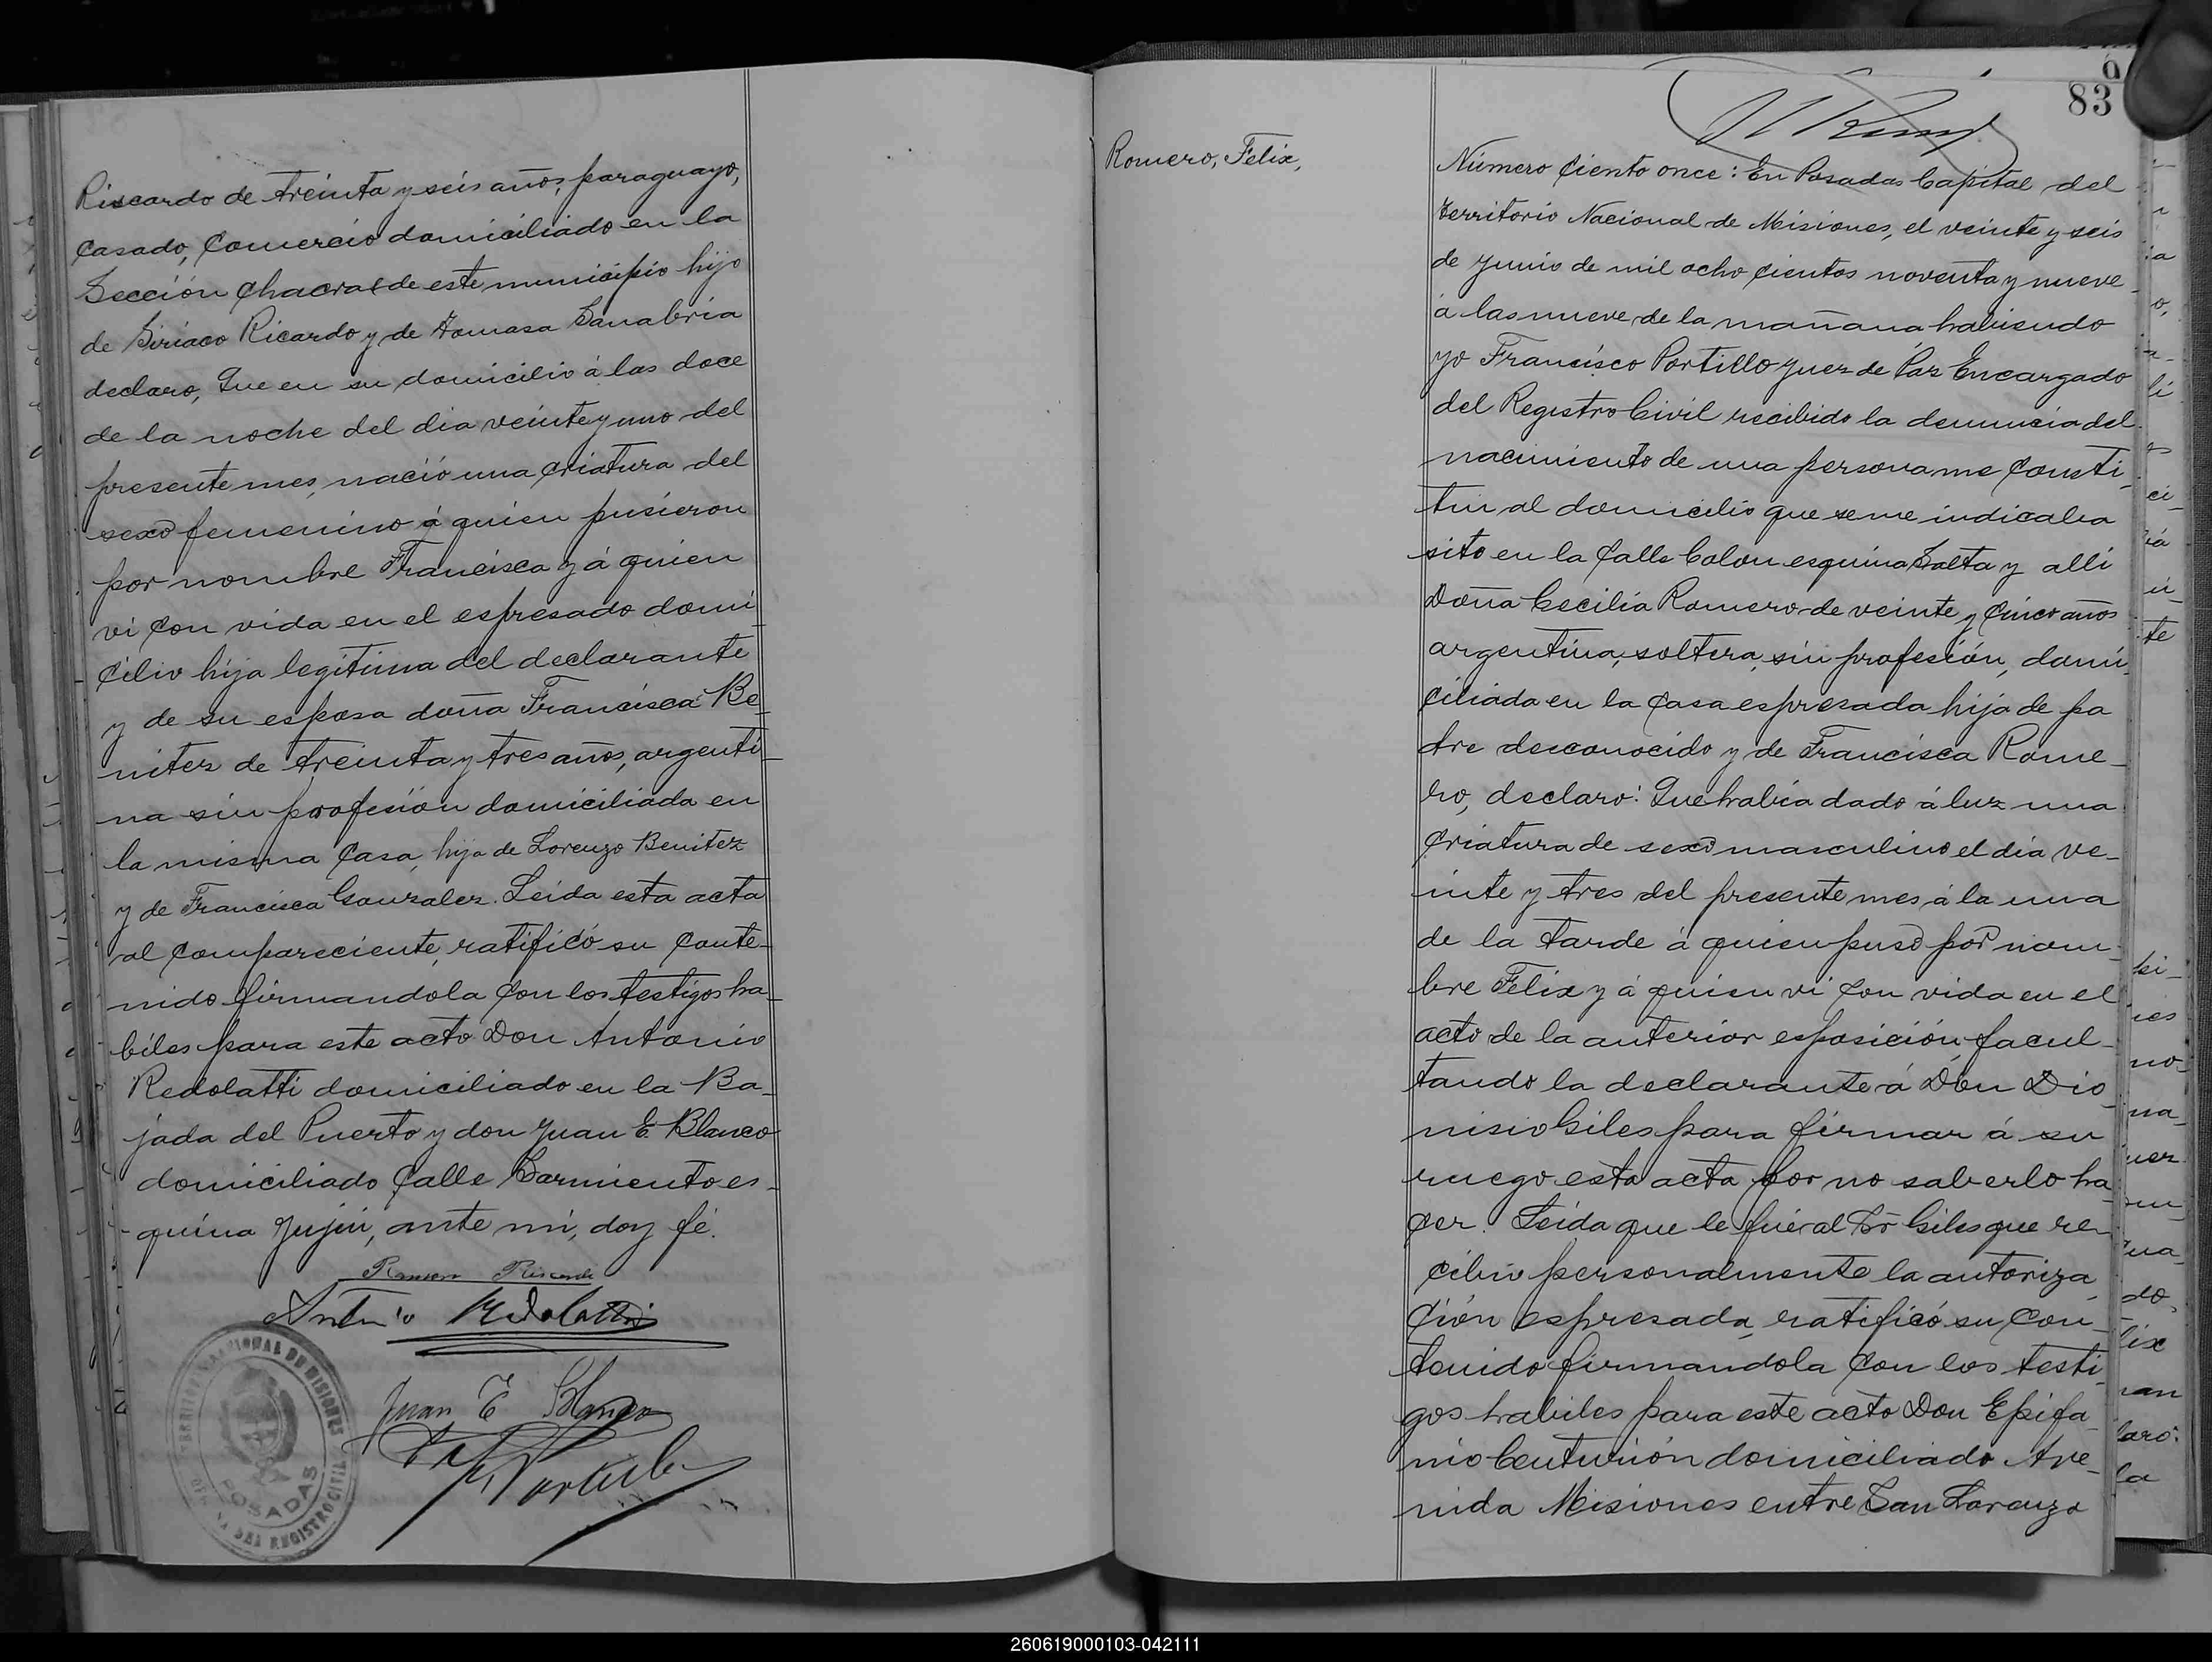 Riscardo de treinta y seis años, paraguayo,
casado, comercio domiciliado en la
Sección chacras de este municipio hijo
de Siriaco Ricardo y de Tomasa Sanabria
declaro, Que en su domicilio á las doce
de la noche del dia veinte y uno del
presente mes, nació una criatura del
sexo femenino á quien pusieron
por nombre Francisca y á quien
vi con vida en el espresado domi-
cilio hija legitima del declarante
y de su esposa doña Francisca Be-
nitez de treinta y tres años, argenti-
na sin profesión domiciliada en
la misma casa, hija de Lorenzo Benitez
y de Francisca Gonzalez. Leida esta acta
al compareciente, ratificó su conte-
nido firmandola con los testigos ha-
biles para este acto Don Antonio
Redolatti domiciliado en la Ba-
jada del Puerto y don Juan E. Blanco
domiciliado calle Sarmiento es-
quina Jujui, ante mi, doy fé.
Ramon Riscardo
Antonio Redolatti
Juan E Blanco
Portillo
TERRITORIO NACIONAL DE MISIONES
POSADAS
OFICINA DEL REGISTRO CIVIL
83
Romero, Felix,
Número ciento once: En Posadas Capital del
territorio Nacional de Misiones, el veinte y seis
de Junio de mil ocho cientos noventa y nueve
á las nueve de la mañana habiendo
yo Francisco Portillo Juez de Paz Encargado
del Registro Civil recibido la denuncia del
nacimiento de una persona me consti-
tui al domicilio que se me indicaba
sito en la calle Colon esquina Salta y alli
Doña Cecilia Romero de veinte y cinco años
argentina, soltera, sin profesión, domi-
ciliada en la casa espresada hija de pa
dre desconocido y de Francisca Rome-
ro, declaro: Que habia dado á luz una
criatura de sexo masculino el dia ve-
inte y tres del presente mes á la una
de la tarde á quien puso por nom-
bre Felix y á quien vi con vida en el
acto de la anterior esposición facul-
tando la declarante á Don Dio-
nisio Giles para firmar á su
ruego esta acta por no saberlo ha-
cer. Leida que le fué al Sr Giles que re-
cibio personalmente la autoriza
ción espresada, ratificó su con-
tenido firmandola con los testi-
gos habiles para este acto Don Epifa-
nio Centurión domiciliado Ave-
nida Misiones entre San Lorenzo
260619000103-042111